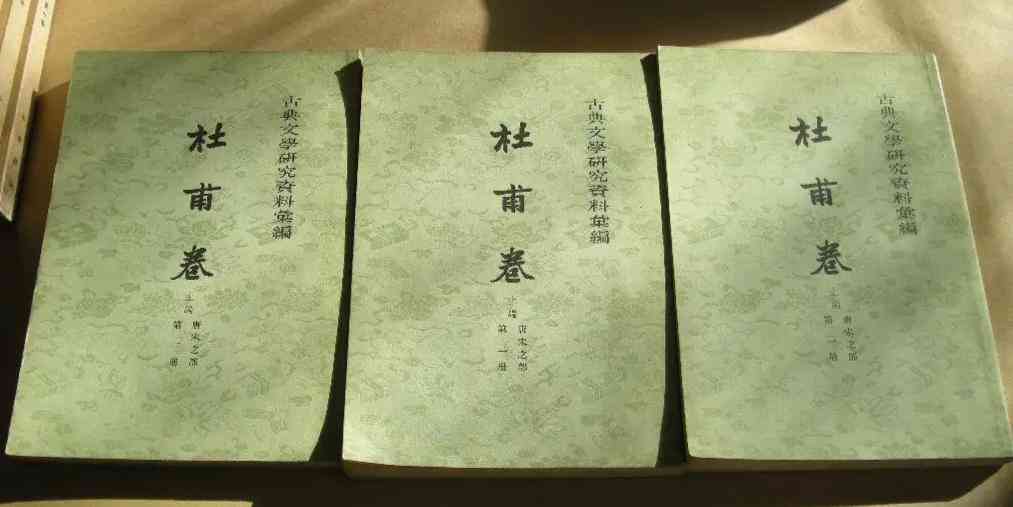 古典文學研究資料彙編
杜甫卷
上編
唐宋之部
古典文學研究資料彙編
杜甫卷
上編
唐宋之部
古典文學研究資料彙編
杜甫卷
上編
唐宋之部